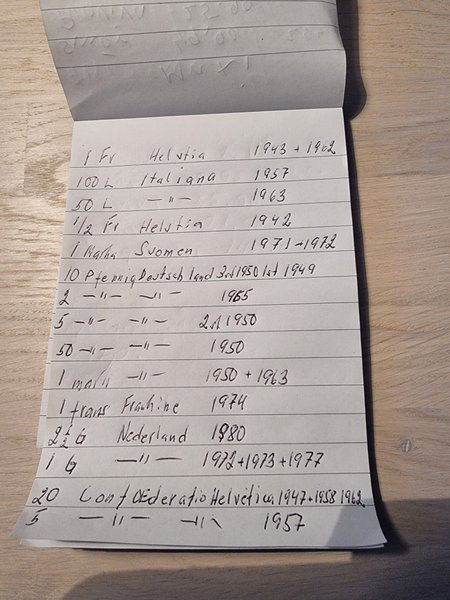 1 Fr Helvtia 1943 + 1962
100 L Italiana 1957
50 L —"— 1963
1/2 Fr Helvtia 1942
1 Marka Suomen 1971+1972
10 Pfennig Deutschland 3st 1950 1st 1949
2 —"— —"— 1965
5 —"— —"— 2st 1950
50 —"— —"— 1950
1 mark —"— 1950 + 1963
1 frans 1974
2½ G Nederland 1980
1 G —"— 1972+1973+1977
20 ConfOEderatio Helvetica 1947+1958 1962
5 —"— —"— 1957